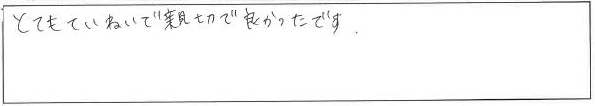 とてもていねいで親切で良かったです.